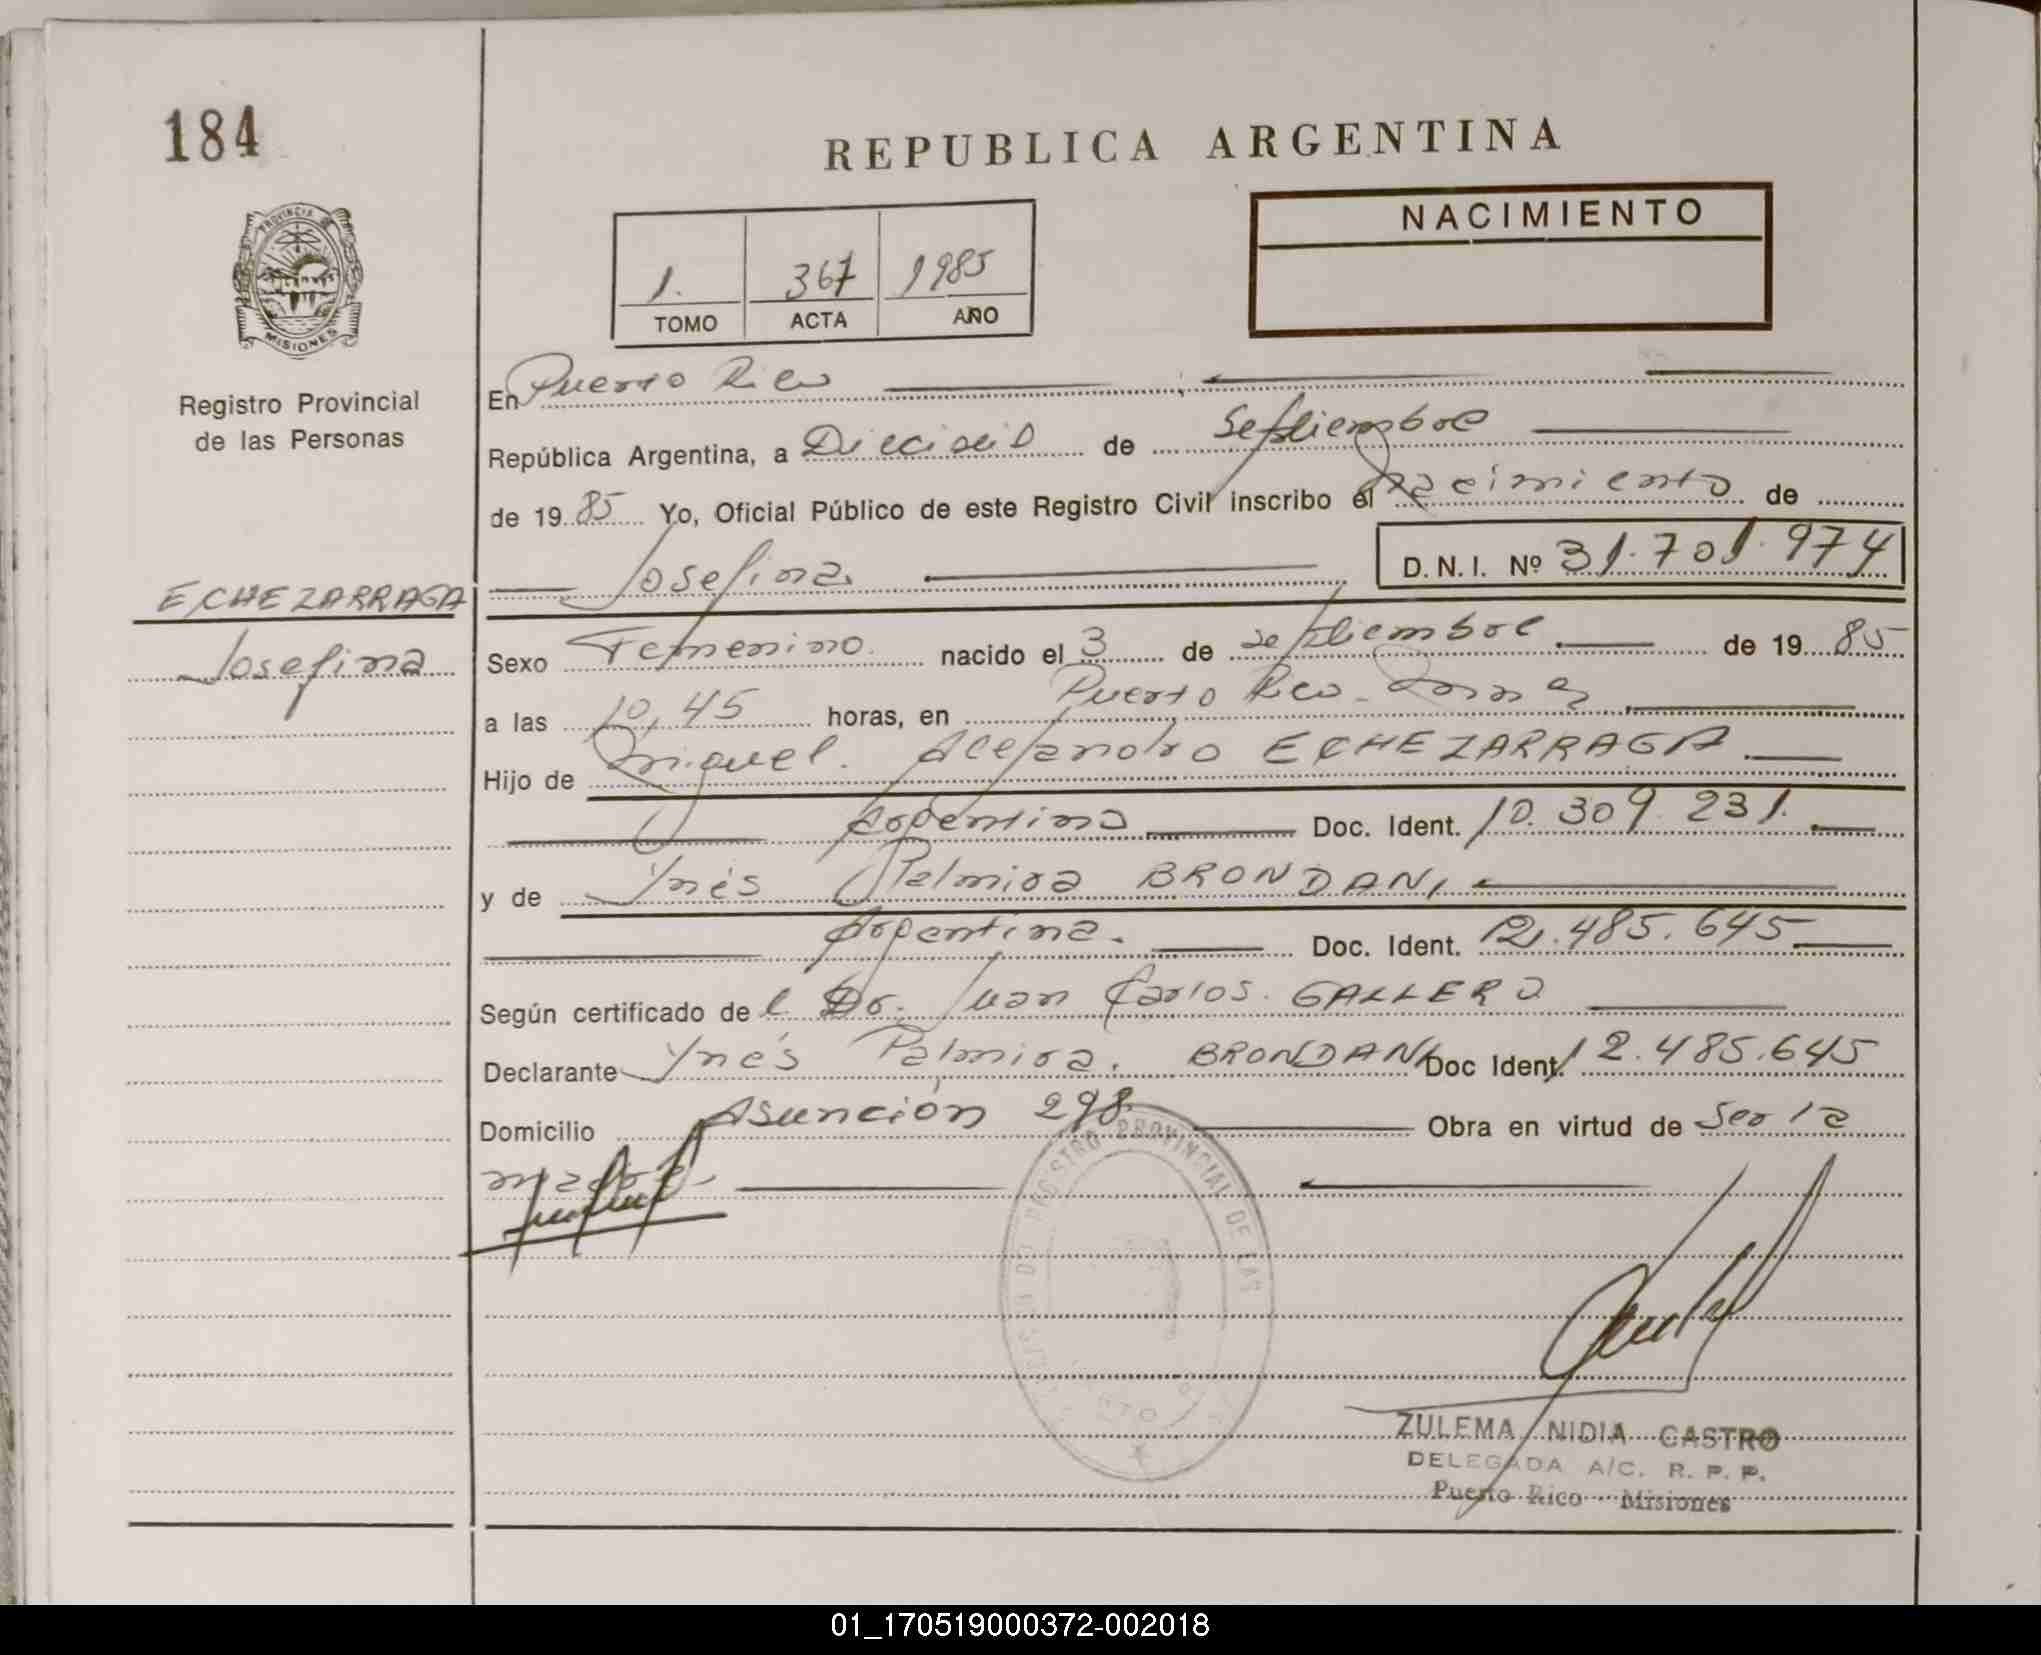 184
REPUBLICA ARGENTINA
PROVINCIA DE
MISIONES
Registro Provincial
de las Personas
NACIMIENTO
1. 367 1985
TOMO ACTA AÑO
En Puerto Rico
República Argentina, a Dieciseis de Septiembre
de 1985 Yo, Oficial Público de este Registro Civil inscribo el Nacimiento de
Josefina D.N.I. Nº 31.701.974
ECHEZARRAGA
Josefina
Sexo Femenino nacido el 3 de septiembre de 1985
a las 10,45 horas, en Puerto Rico
Hijo de Miguel Alejandro ECHEZARRAGA
Argentino Doc. Ident. 10.309.231.
y de Ynés Palmira BRONDANI
Argentina. Doc. Ident. 12.485.645
Según certificado de l Dr. Juan Carlos GALLERO
Declarante Ynés Palmira BRONDANI Doc Ident. 12.485.645
Domicilio Asunción 298 Obra en virtud de Ser la
madre
REGISTRO PROVINCIAL DE LAS
ZULEMA NIDIA CASTRO
DELEGADA A/C. R. P. P.
Puerto Rico Misiones
01_170519000372-002018